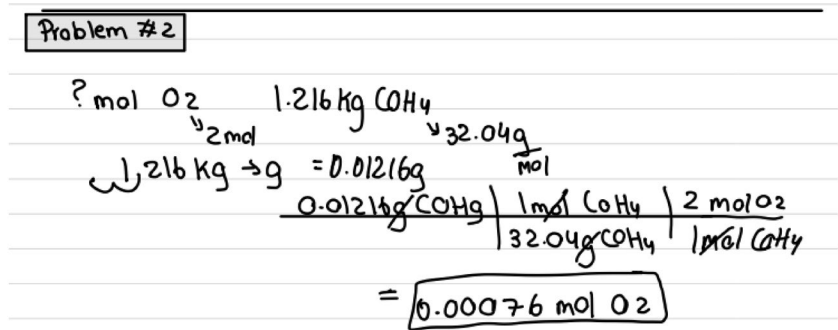 Problem #2
? mol O2 1.216 kg COH4
↘ 2 mol ↘ 32.04g/mol
1,216 kg → g = 0.01216g
0.01216g COH4 | 1 mol COH4 | 2 mol O2
| 32.04g COH4 | 1 mol COH4
= 0.00076 mol O2